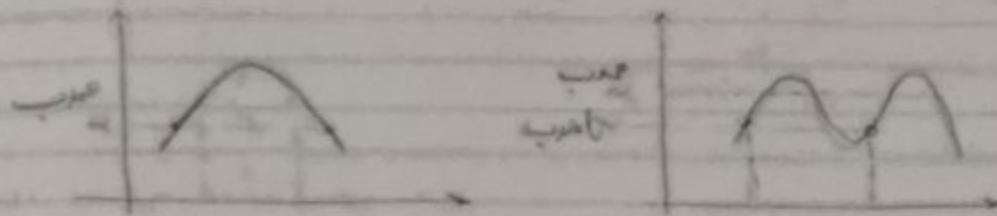 محدب
محدب
نامحدب